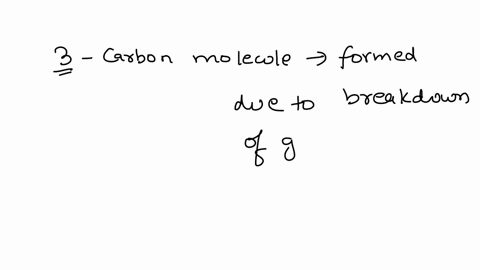 3 - Carbon molecule → formed
due to breakdown
of g